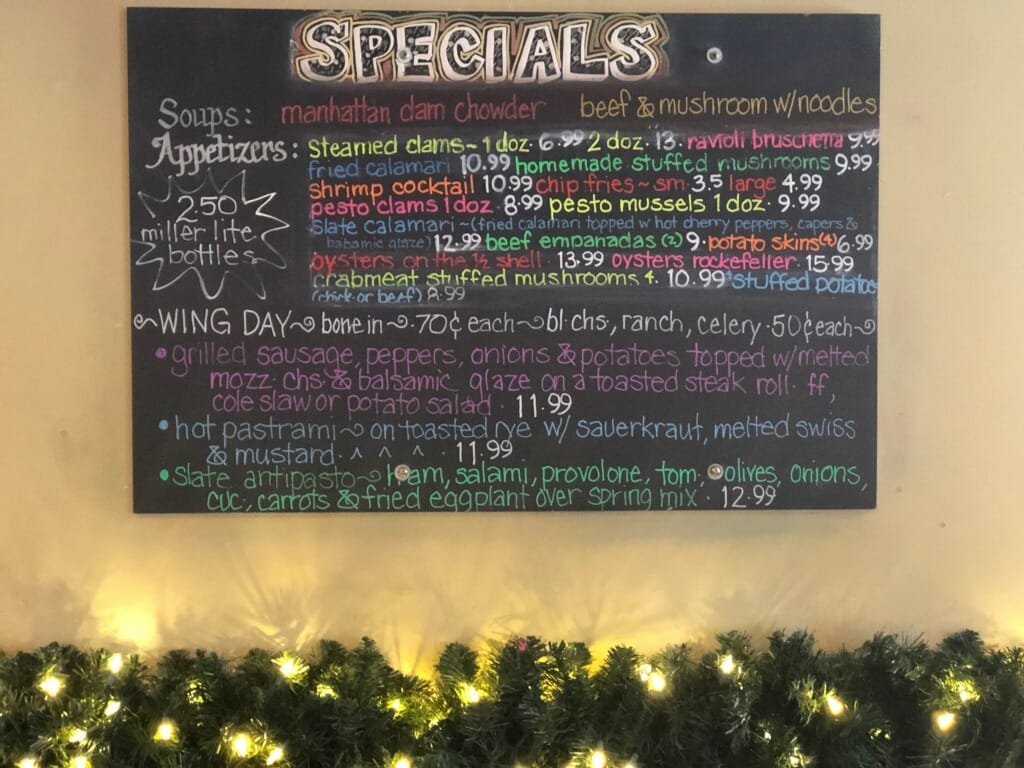 SPECIALS
Soups: manhattan clam chowder beef & mushroom w/noodles
Appetizers: steamed clams ~ 1 doz. 6.99 2 doz. 13. ravioli bruschetta 9.99
fried calamari 10.99 homemade stuffed mushrooms 9.99
shrimp cocktail 10.99 chip fries ~ sm 3.5 large 4.99
pesto clams 1 doz. 8.99 pesto mussels 1 doz. 9.99
slate calamari ~ (fried calamari topped w/ hot cherry peppers, capers &
balsamic glaze) 12.99 beef empanadas (2) 9. potato skins (4) 6.99
oysters on the ½ shell. 13.99 oysters rockefeller. 15.99
crabmeat stuffed mushrooms 4. 10.99 stuffed potatoe
(chick or beef) 8.99
2.50
miller lite
bottles
~WING DAY~ bone in ~ .70¢ each ~ bl chs, ranch, celery .50¢ each ~
• grilled sausage, peppers, onions & potatoes topped w/melted
mozz. chs & balsamic glaze on a toasted steak roll. ff,
cole slaw or potato salad. 11.99
• hot pastrami ~ on toasted rye w/ sauerkraut, melted swiss
& mustard. ^ ^ ^ . 11.99
• slate antipasto ~ ham, salami, provolone, tom, olives, onions,
cuc, carrots & fried eggplant over spring mix. 12.99